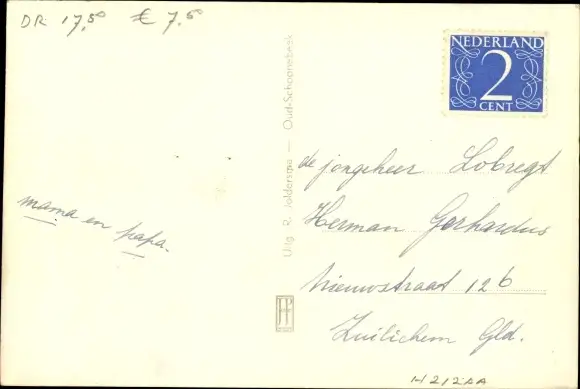 DR 17,50 € 7,50
NEDERLAND
2
CENT
Uitg. R. Joldersma — Oud-Schoonebeek
de jongeheer Lobregt
Herman Gerhardus
Nieuwstraat 126
Zuilichem Gld.
mama en papa.
H212AA